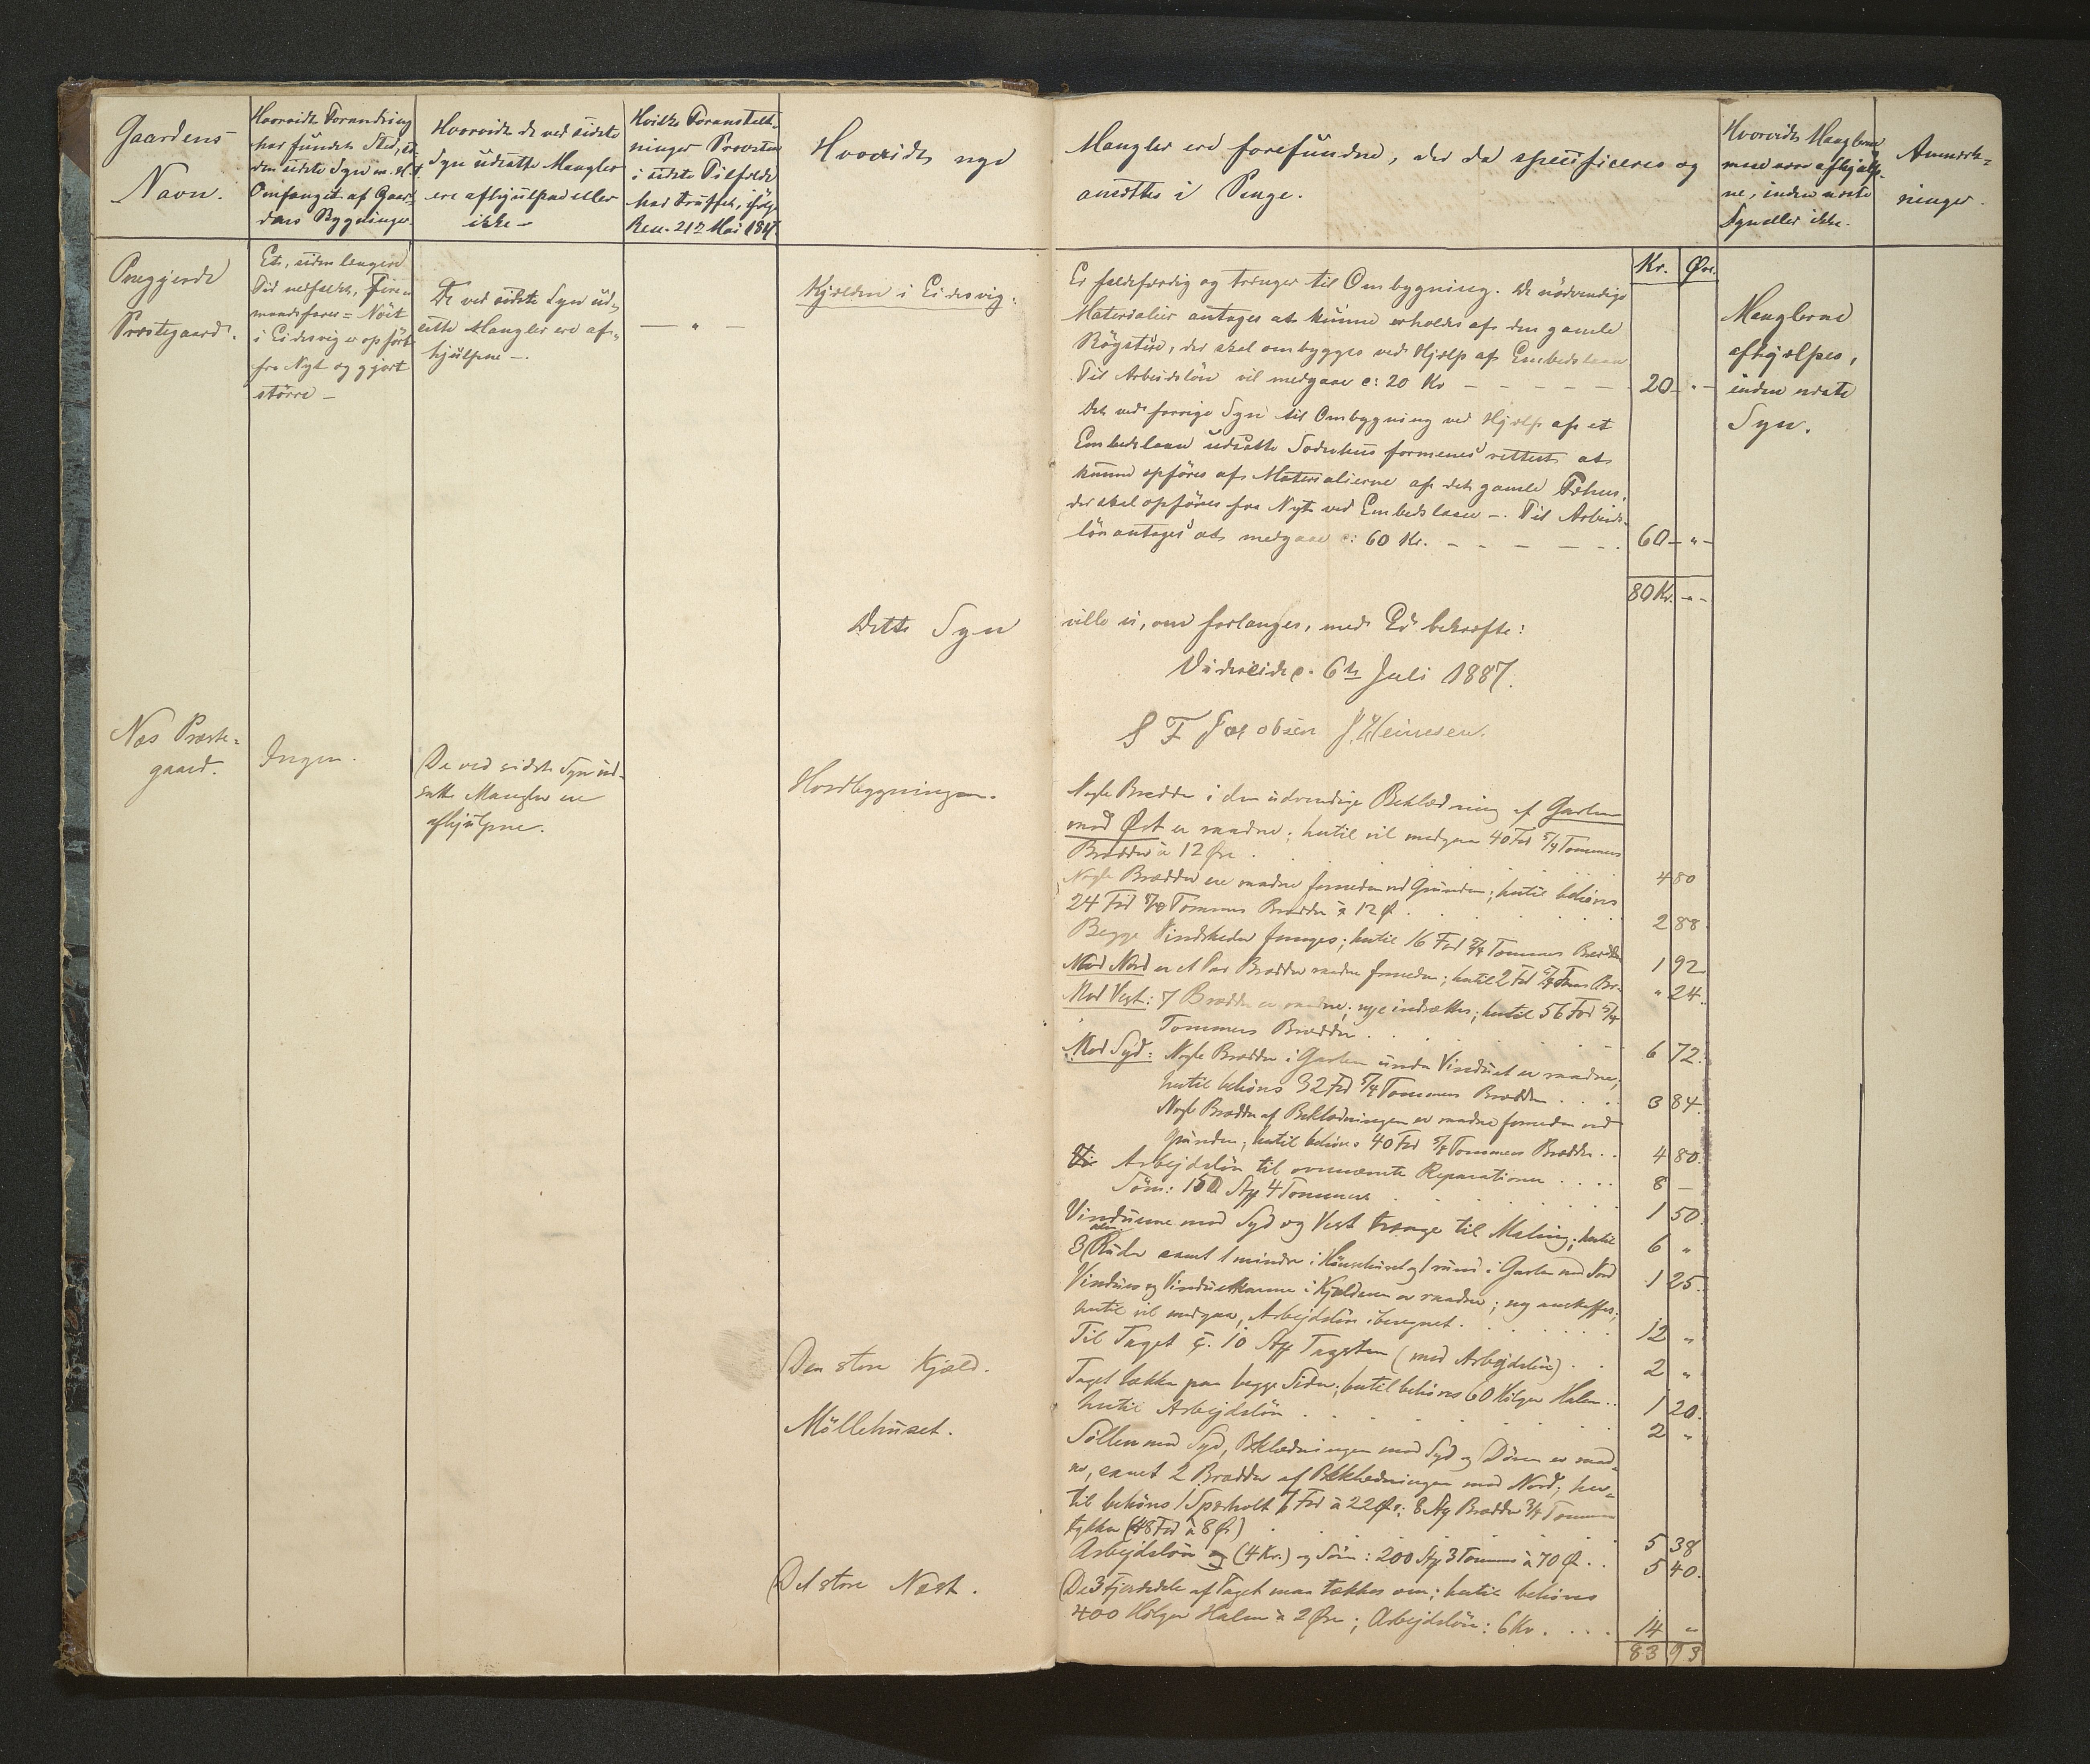 Gaardens
Navn.
Hvorvidt Forandring
har fundet Sted, siden
den sidste Syn m. H. t.
Omfanget af Gaar-
dens Bygninger.
Hvorvidt de ved sidste
Syn udsatte Mangler
ere afhjulpne eller
ikke –
Hvilke Foranstalt-
ninger Provsten
i sidste Tilfælde
har truffet, ifølge
Resc. 21de Mai 1817.
Hvorvidt nye
Mangler ere forefundne, der da specificeres og
ansættes i Penge.
Hvorvidt Manglerne
ere afhjælp-
ne, inden næste
Syn eller ikke.
Anmærk-
ninger.
Kr. Øre.
Onegjerde
Præstegaard.
Et, siden længere
Tid nedfaldet, Fire-
mandsfarer = Nøst
i Eidesvig er opført
fra Nyt og gjort
større –
De ved sidste Syn ud-
satte Mangler ere af-
hjulpne –.
— " —
Kjælderen i Eidesvig:
Er faldefærdig og trænger til Ombygning. De nødvendige
Materialier antages at kunne erholdes af den gamle
Røgstue, der skal ombygges ved Hjælp af Embedslaan
Til Arbeidsløn vil medgaae c: 20 Kr — — — — — 20 — " —
Det ved forrige Syn til Ombygning ved Hjælp af et
Embedslaan udsatte formenes rettest at
kunne opføres af Materialierne af det gamle Fæhus,
der skal opføres fra Nyt ved Embedslaan –. Til Arbeids-
løn antages at medgaae c: 60 Kr. — — — — — 60 — " —
80 Kr. — " —
Manglerne
afhjælpes,
inden næste
Syn.
Dette Syn ville vi, om forlanges, med Ed bekræfte:
Viderejde d. 6te Juli 1887.
S F Jacobsen J. Heinesen.
Næs Præste-
gaard.
Ingen.
De ved sidste Syn ud-
satte Mangler ere
afhjulpne.
Hovedbygningen.
Nogle Brædder i den udvendige Beklædning af Gavlen
mod Øst er raadne; hertil vil medgaa 40 Fod 5/4 Tommers
Brædder à 12 Øre . . . . . 4 80
Nogle Brædder ere raadne forneden ved Grunden; hertil behøves
24 Fod 5/4 Tommers Brædder à 12 Ø . . . . 2 88.
Begge Vindskeder fornyes; hertil 16 Fod 5/4 Tommers Brædder 1 92
Mod Nord er et Par Brædder raadne forneden; hertil 2 Fod 5/4 Toms Br. " 24.
Mod Vest: 7 Brædder er raadne; nye indsættes; hertil 56 Fod 5/4
Tommers Brædder . . . . . 6 72.
Mod Syd: Nogle Brædder i Gavlen under Vinduet er raadne;
hertil behøves 32 Fod 5/4 Tommers Brædder . . . . 3 84.
Nogle Brædder af Beklædningen er raadne forneden ved
Grunden; hertil behøves 40 Fod 5/4 Tommers Brædder . . 4 80.
Arbejdsløn til ovennævnte Reparationer . . . . 8 —
Søm: 150 Stk 4 Tommers . . . . . 1 50.
Vinduerne mod Syd og Vest trænge til Maling; hertil 6 "
3 Ruder samt 1 mindre i Hønsehuset og 1 rund i Gavlen mod Nord 1 25.
Vindues og Vindueskarme i Kjælderen er raadne; ny anskaffes;
hertil vil medgaa, Arbejdsløn iberegnet . . . . . . 12 "
Til Taget c. 10 Stk Tagsten (med Arbejdsløn) . . 2 "
Den store Kjæld.
Taget lække paa begge Sider; hertil behøves 60 Kilger Halm . . 1 20.
hertil Arbejdsløn . . . . . 2 "
Möllehuset.
Syllen mod Syd, Beklædningen mod Syd og Døren er raad-
ne, samt 2 Brædder af Beklædningen mod Nord; her-
til behøves 1 Spærholt 7 Fod à 22 Ør; 8 Stk Brædder 3/4 Tomme
tykke (48 Fod à 8 Ør) . . . . . 5 38
Arbejdsløn (4 Kr.) og Søm: 200 Stk 3 Tommers à 70 Ø . . 5 40.
Det store Nøst.
De 3 Fjerdedele af Taget maa tækkes om; hertil behøves
400 Kilger Halm à 2 Øre; Arbejdsløn: 6 Kr. . . . 14 "
83 93